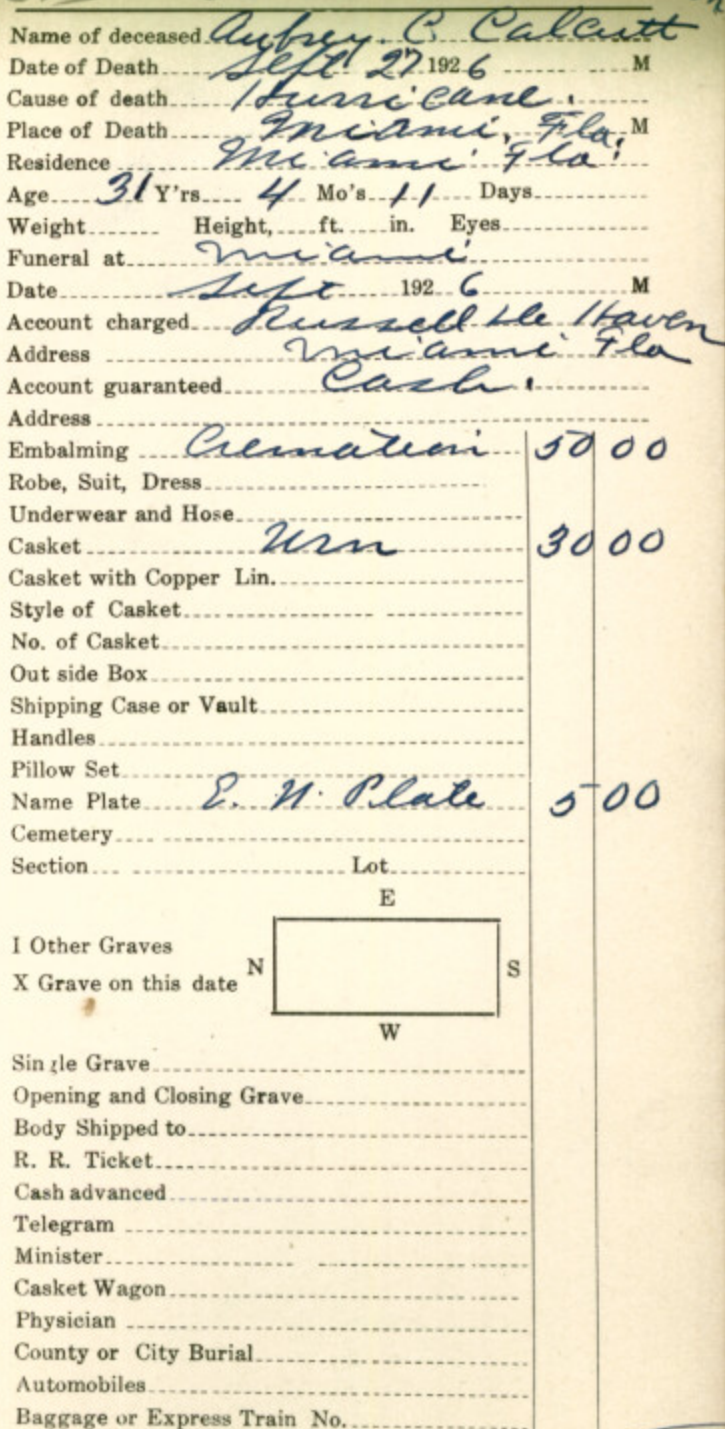 Name of deceased Aubrey. C. Calcutt
Date of Death Sept 27 1926 M
Cause of death Hurricane.
Place of Death Miami, Fla. M
Residence Miami Fla.
Age 31 Y'rs 4 Mo's 11 Days
Weight Height, ft. in. Eyes
Funeral at Miami
Date Sept 1926 M
Account charged Russell De Haven
Address Miami Fla
Account guaranteed Cash.
Address
Embalming Cremation 50 00
Robe, Suit, Dress
Underwear and Hose
Casket Urn 30 00
Casket with Copper Lin.
Style of Casket
No. of Casket
Out side Box
Shipping Case or Vault
Handles
Pillow Set
Name Plate E. N. Plate 5 00
Cemetery
Section Lot
E
I Other Graves
N S
X Grave on this date
W
Single Grave
Opening and Closing Grave
Body Shipped to
R. R. Ticket
Cash advanced
Telegram
Minister
Casket Wagon
Physician
County or City Burial
Automobiles
Baggage or Express Train No.